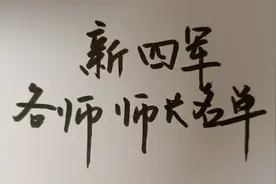 新四军
各师师长名单